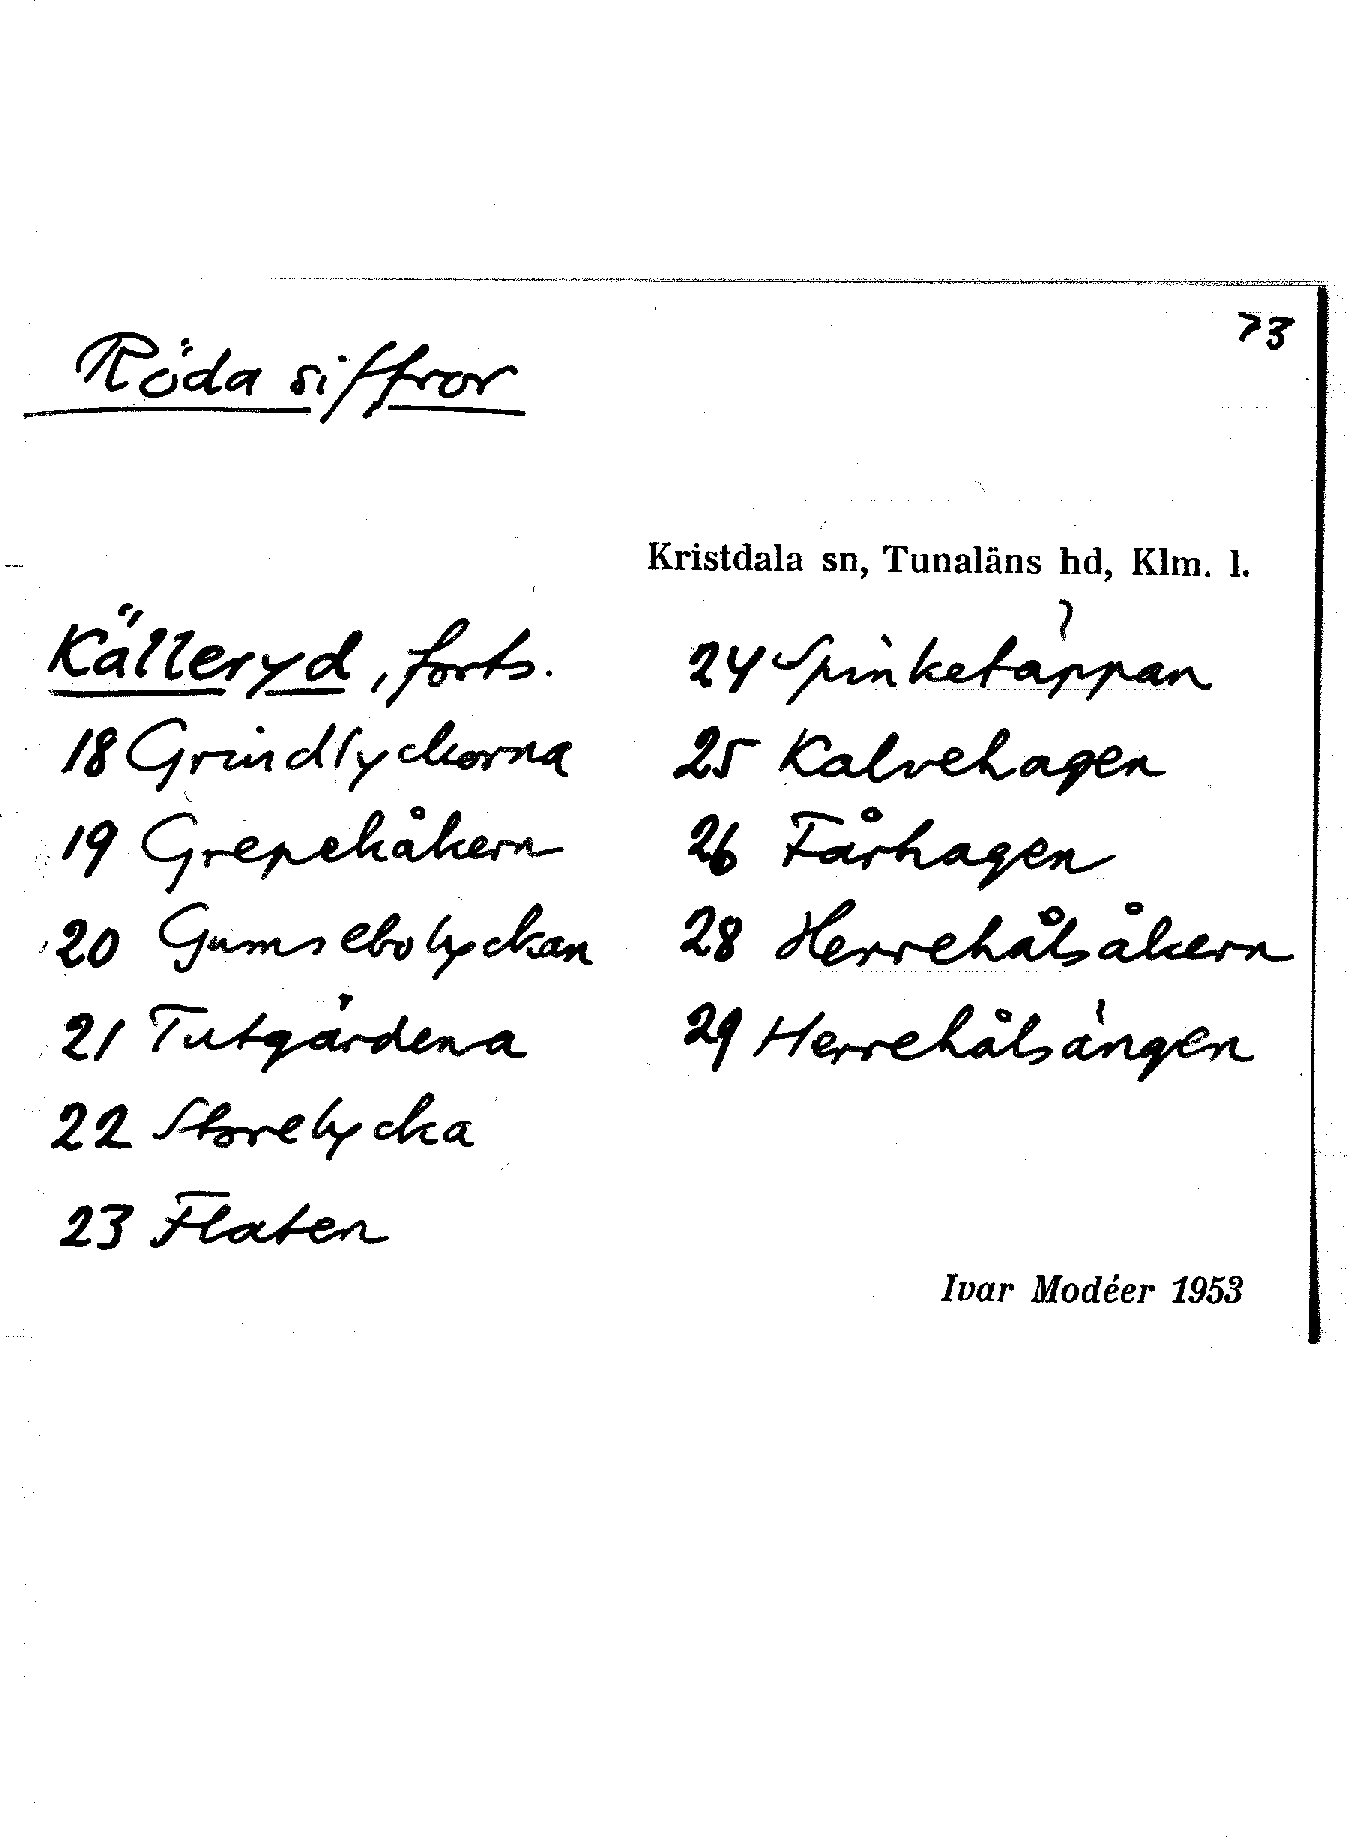 73
Röda siffror
Kristdala sn, Tunaläns hd, Klm. l.
Källeryd, forts.
18 Grindlyckorna
19 Grepekåkern
20 Gumsebolyckan
21 Tutgärdena
22 Storelycka
23 Flaten
24 Spinketäppan
25 Kalvehagen
26 Fårhagen
28 Herrehålsåkern
29 Herrehålsängen
Ivar Modéer 1953